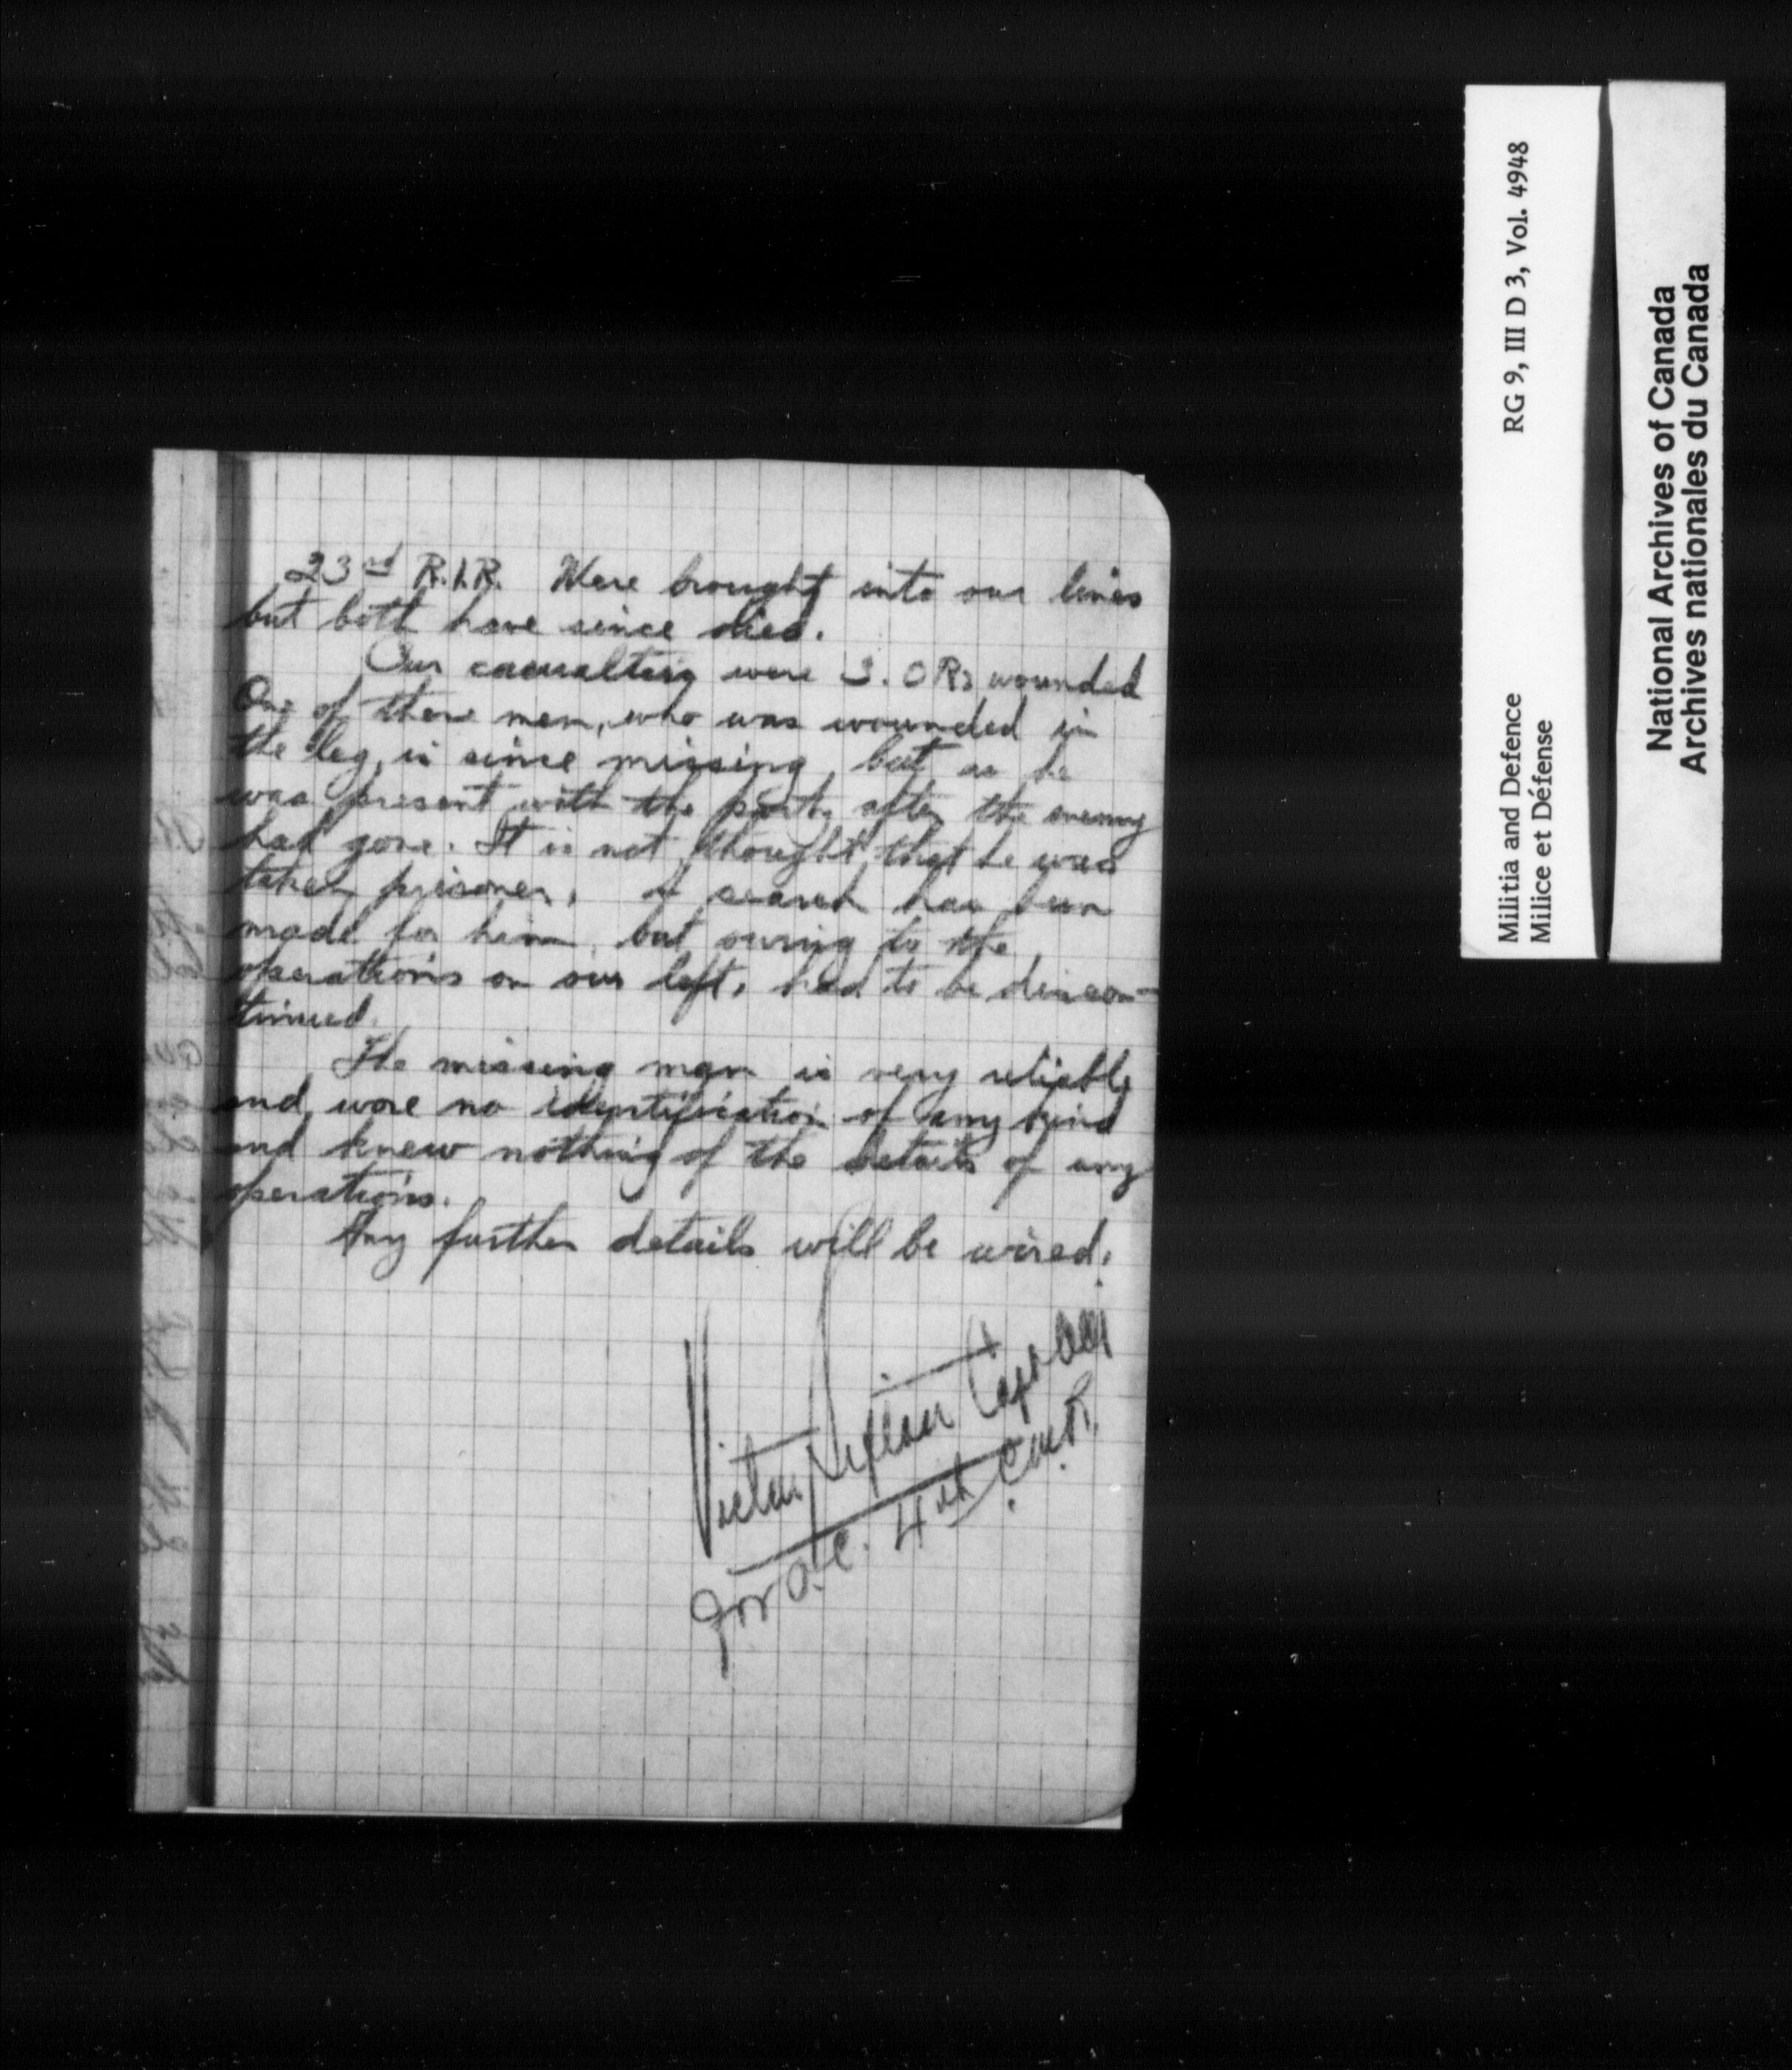 23rd R.I.R. Were brought into our lines
but both have since died.
Our casualties were 3. ORs wounded
One of these men, who was wounded in
the leg, is since missing, but as he
was present with the party after the enemy
had gone. It is not thought that he was
taken prisoner. A search has been
made for him, but owing to the
operations on our left, had to be discon-
tinued.
The missing man is very reliable
and wore no identification of any kind
and knew nothing of the details of any
operations.
Any further details will be wired.
Victor Capt
for O.C. 4th C.M.R.
Militia and Defence RG 9, III D 3, Vol. 4948
Milice et Défense
National Archives of Canada
Archives nationales du Canada